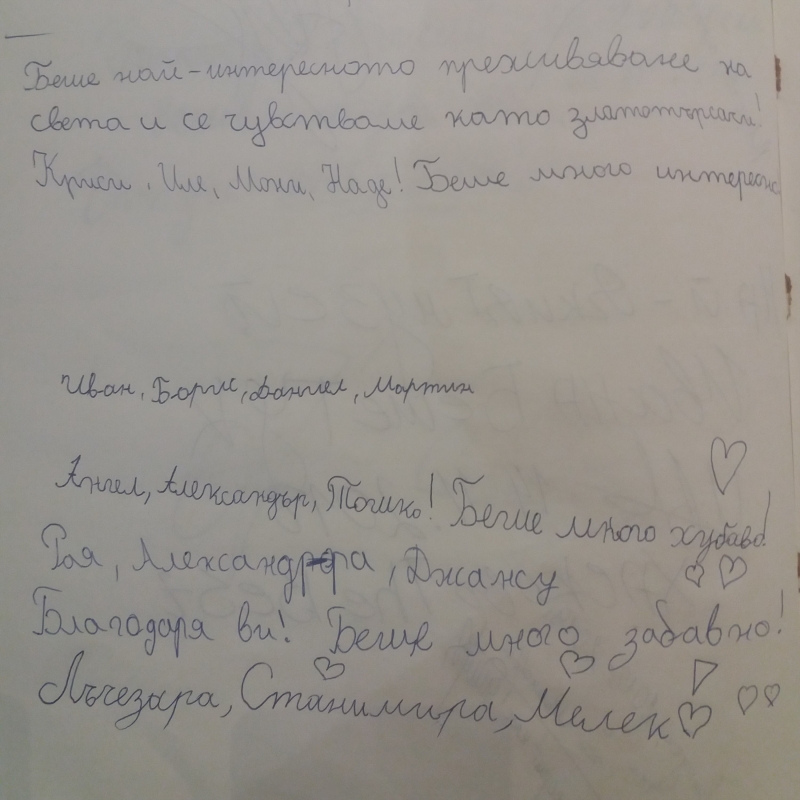 Беше най-интересното преживяване на
света и се чувстваме като златотърсачи!
Криси, Или, Мони, Наде! Беше много интересно
Иван, Борис, Даниел, Мартин
Ангел, Александър, Тошко! Беше много хубаво!
Рая, Александра, Джансу
Благодаря ви! Беше много забавно!
Лъчезара, Станимира, Мелек